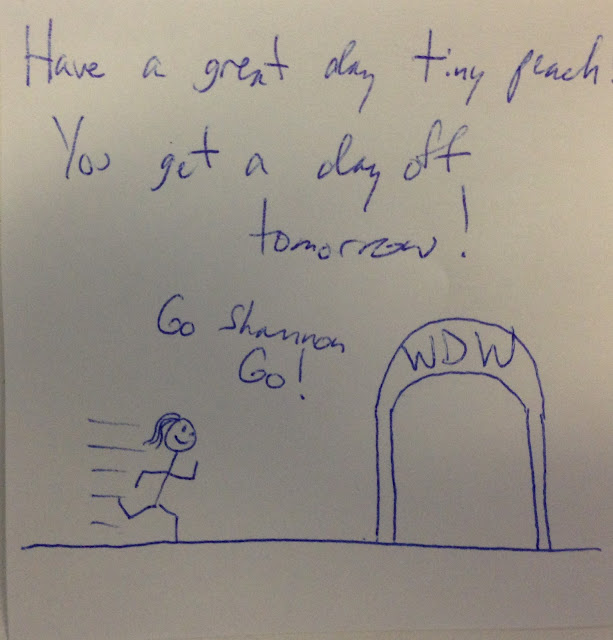 Have a great day tiny peach.
You get a day off
tomorrow!
Go Shannon
Go!
WDW